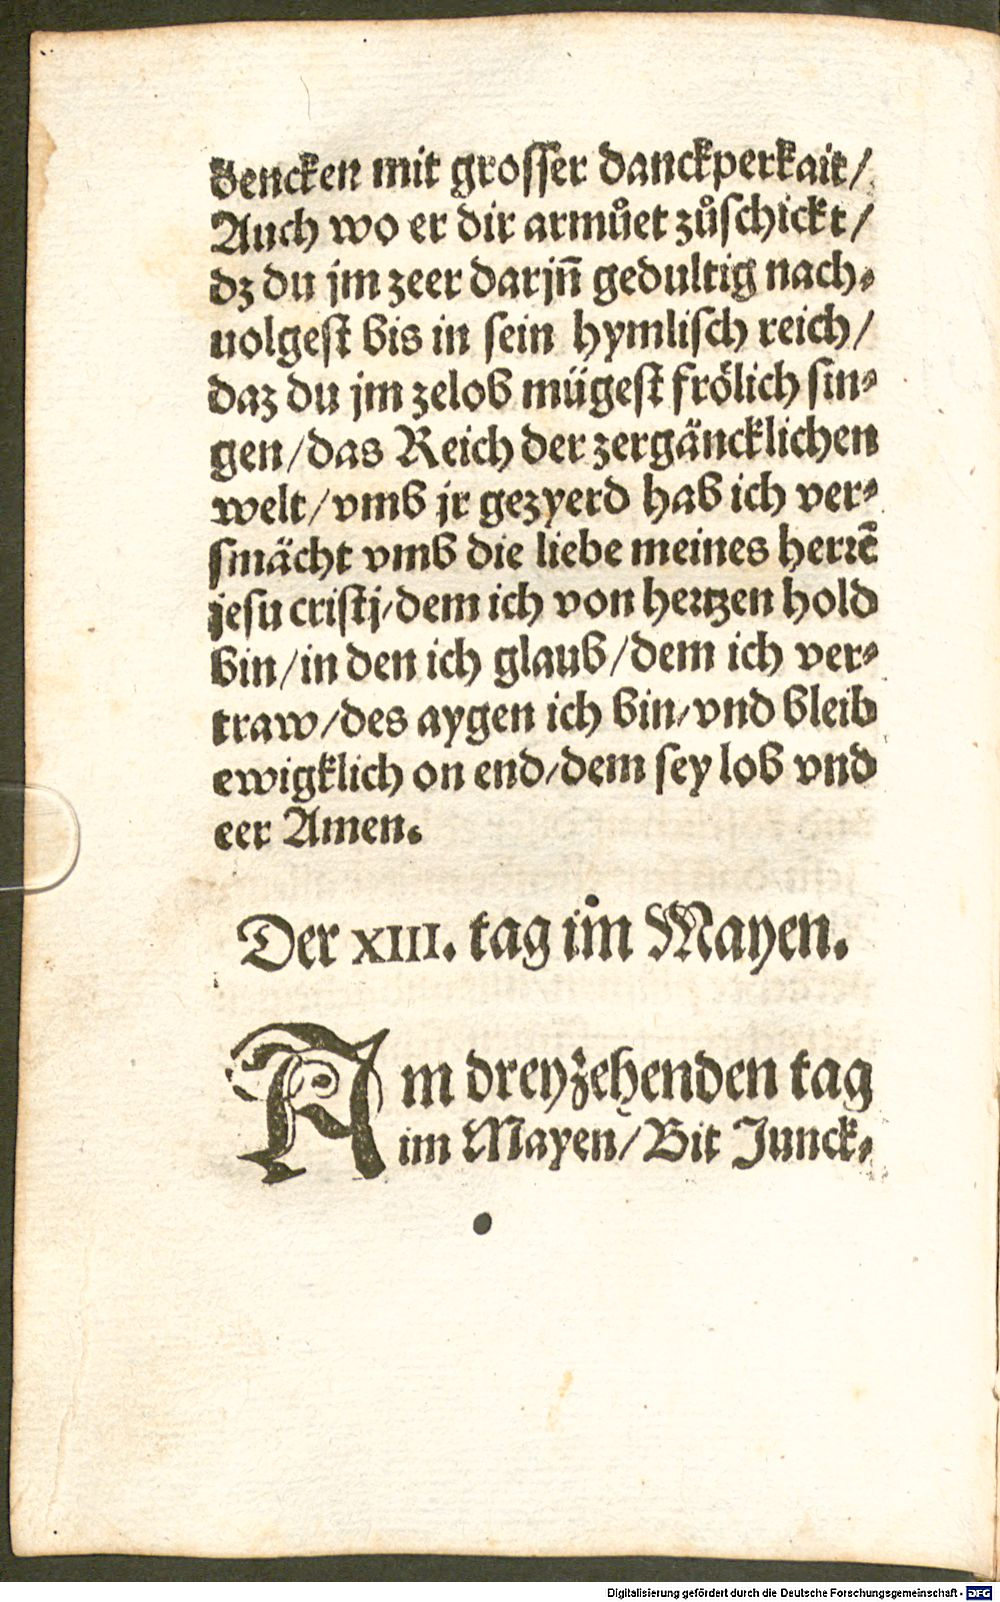 dencken mit grosser danckperkait/
Auch wo er dir armůet zůſchickt/
dz du jm zeer darjn̄ gedultig nach⸗
uolgeſt bis in ſein hymliſch reich/
daz du jm zelob mügeſt frölich ſin⸗
gen/das Reich der zergäncklichen
welt/vmb jr gezyerd hab ich ver⸗
ſmächt vmb die liebe meines herrē
jeſu criſtj/dem ich von hertzen hold
bin/in den ich glaub/dem ich ver⸗
traw/des aygen ich bin/vnd bleib
ewigklich on end/dem ſey lob vnd
eer Amen.
Der XIII. tag im Mayen.
Am dreyzehenden tag
im Mayen/Bit Junck⸗
Digitalisierung gefördert durch die Deutsche Forschungsgemeinschaft - DFG